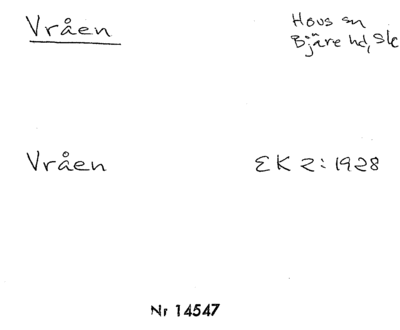 Vråen
Hovs sn
Bjäre hd, Sk
Vråen
EK 2: 1928
Nr 14547